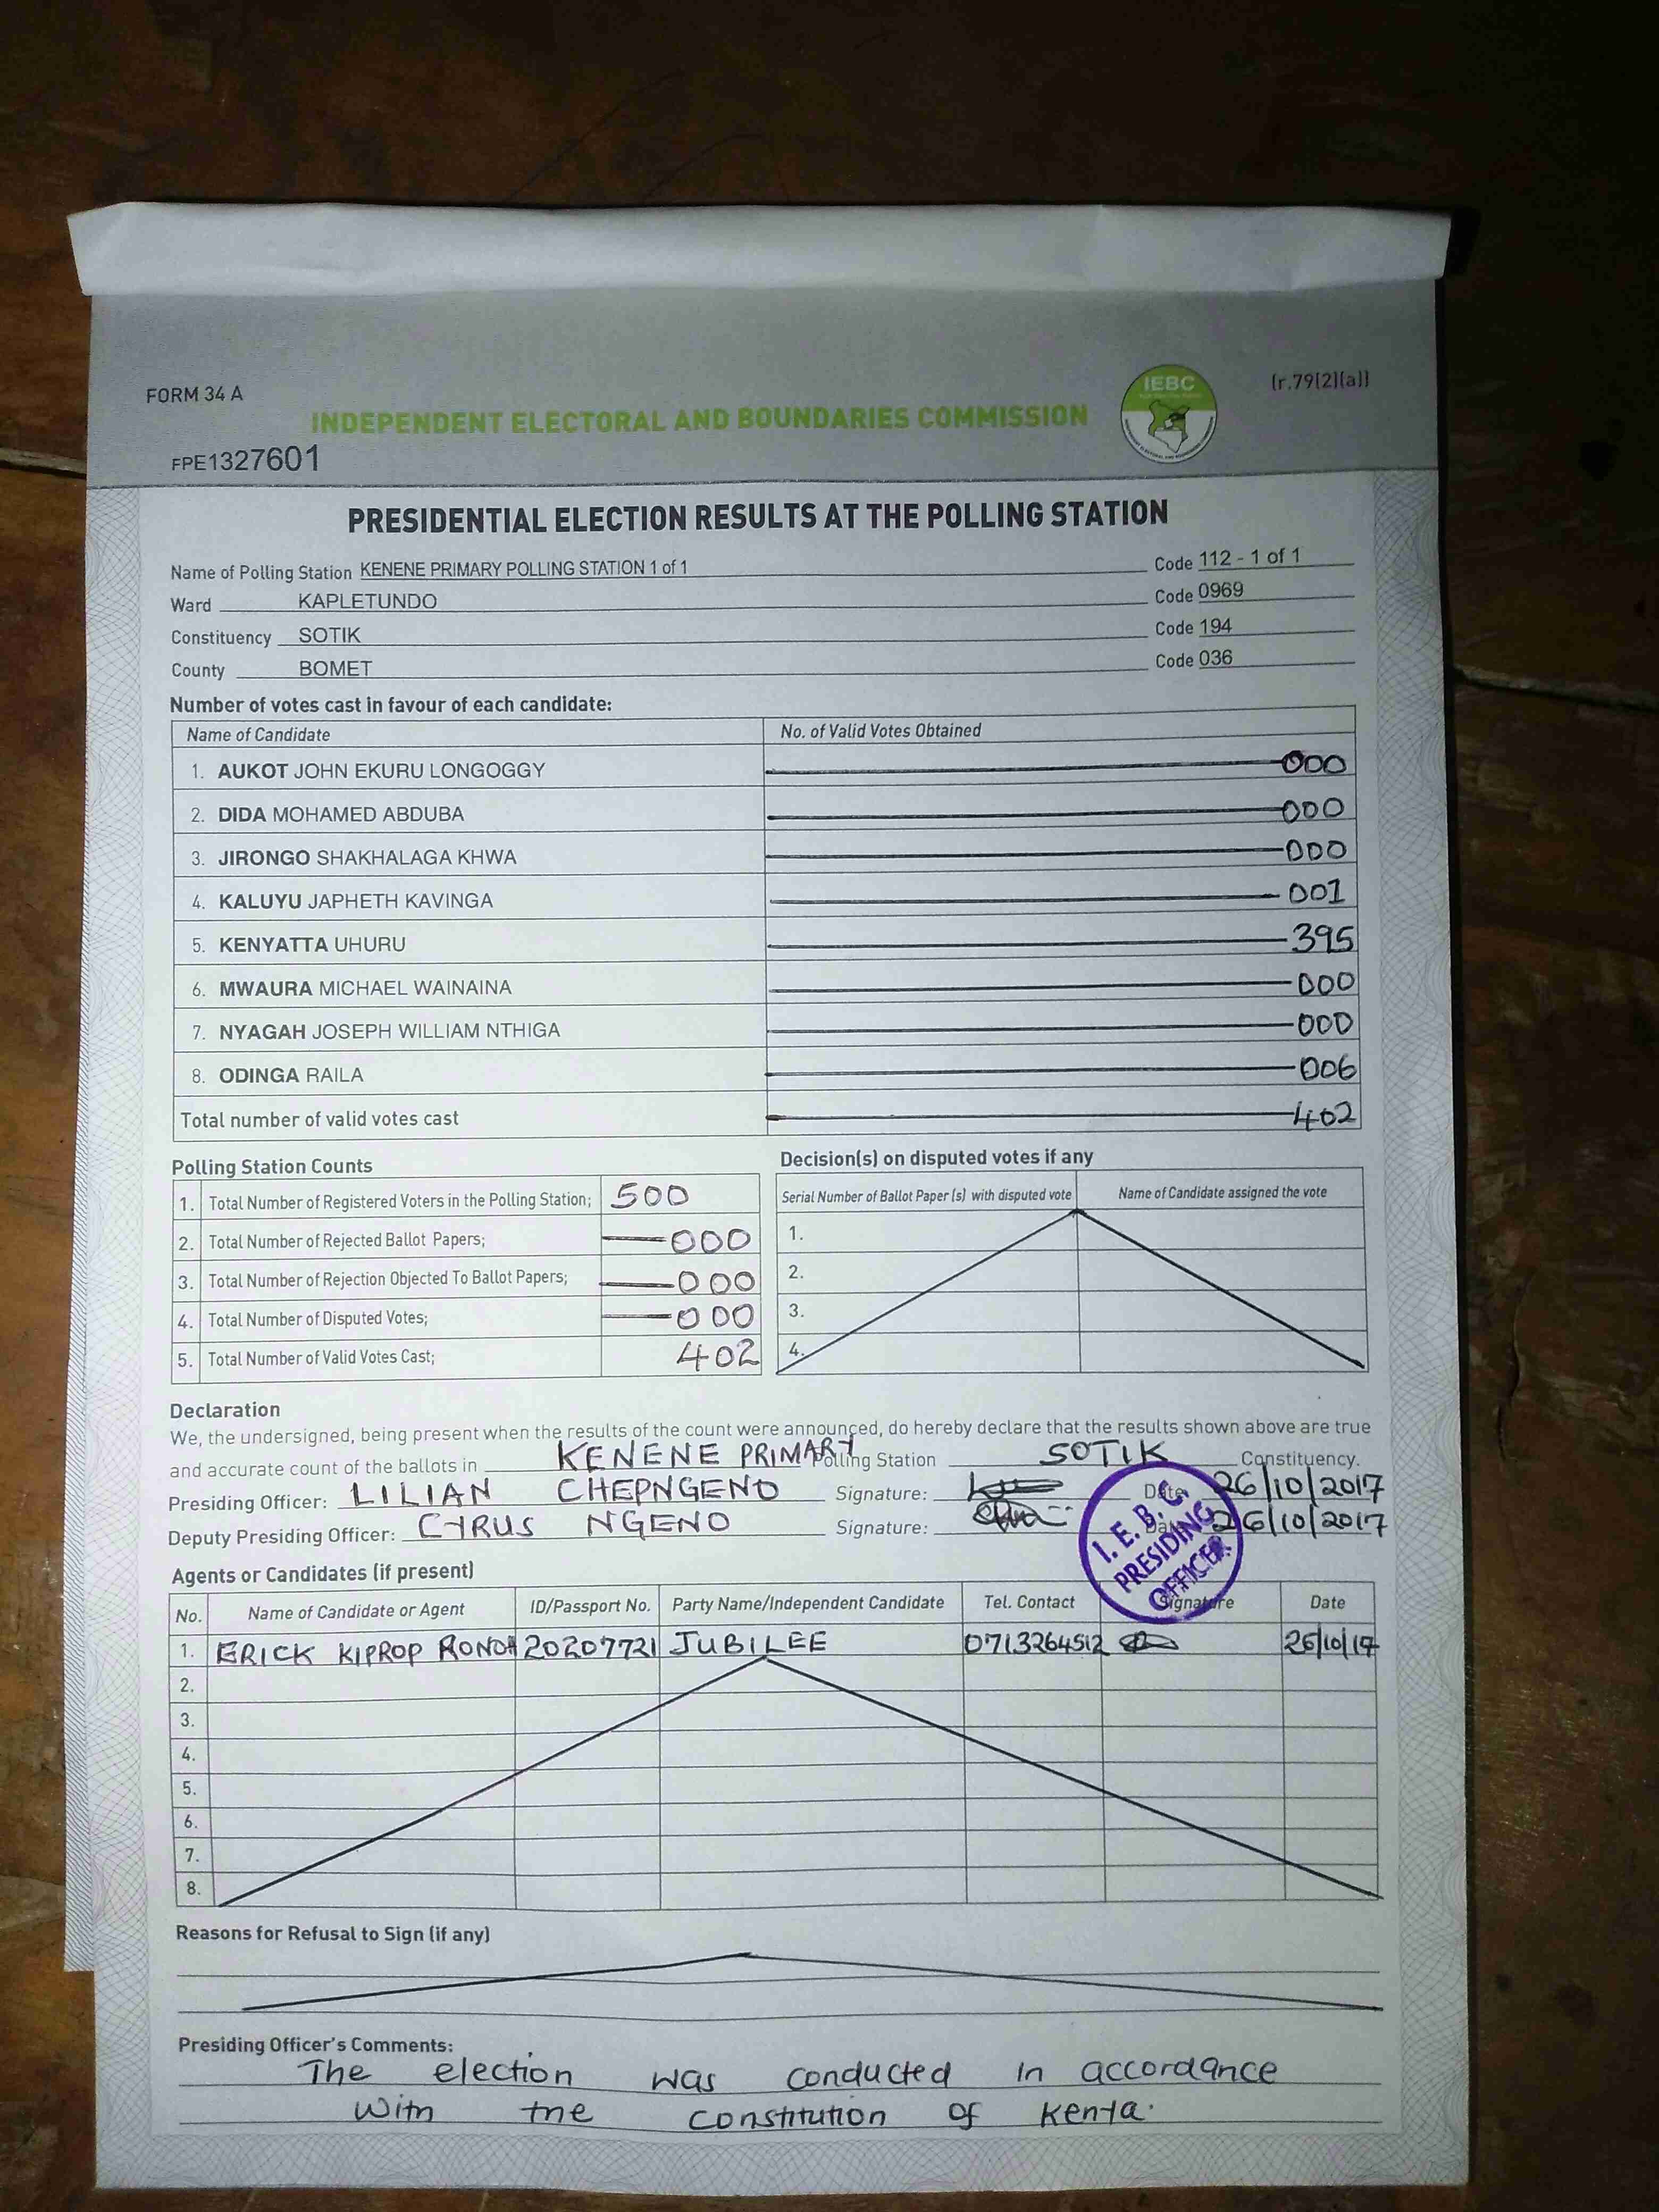 FORM 34 A
INDEPENDENT ELECTORAL AND BOUNDARIES COMMISSION
IEBC
(r.79(2)(a))
FPE1327601
PRESIDENTIAL ELECTION RESULTS AT THE POLLING STATION
Name of Polling Station KENENE PRIMARY POLLING STATION 1 of 1 Code 112 - 1 of 1
Ward KAPLETUNDO Code 0969
Constituency SOTIK Code 194
County BOMET Code 036
Number of votes cast in favour of each candidate:
Name of Candidate No. of Valid Votes Obtained
1. AUKOT JOHN EKURU LONGOGGY 000
2. DIDA MOHAMED ABDUBA 000
3. JIRONGO SHAKHALAGA KHWA 000
4. KALUYU JAPHETH KAVINGA 001
5. KENYATTA UHURU 395
6. MWAURA MICHAEL WAINAINA 000
7. NYAGAH JOSEPH WILLIAM NTHIGA 000
8. ODINGA RAILA 006
Total number of valid votes cast 402
Polling Station Counts
1. Total Number of Registered Voters in the Polling Station; 500
2. Total Number of Rejected Ballot Papers; 000
3. Total Number of Rejection Objected To Ballot Papers; 000
4. Total Number of Disputed Votes; 000
5. Total Number of Valid Votes Cast; 402
Decision(s) on disputed votes if any
Serial Number of Ballot Paper (s) with disputed vote Name of Candidate assigned the vote
1.
2.
3.
4.
Declaration
We, the undersigned, being present when the results of the count were announced, do hereby declare that the results shown above are true
and accurate count of the ballots in KENENE PRIMARY Polling Station SOTIK Constituency.
Presiding Officer: LILIAN CHEPNGENO Signature: Date 26/10/2017
Deputy Presiding Officer: CYRUS NGENO Signature: Date 26/10/2017
I. E. B. C.
PRESIDING
OFFICER
Agents or Candidates (if present)
No. Name of Candidate or Agent ID/Passport No. Party Name/Independent Candidate Tel. Contact Signature Date
1. ERICK KIPROP RONOH 20207721 JUBILEE 0713264512 26/10/17
2.
3.
4.
5.
6.
7.
8.
Reasons for Refusal to Sign (if any)
Presiding Officer's Comments:
The election was conducted in accordance
with the constitution of Kenya.